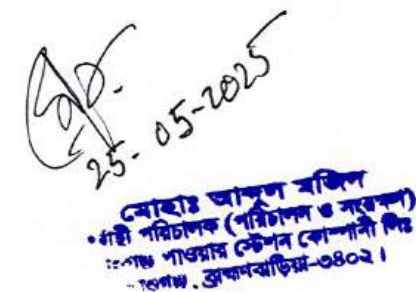 25-05-2025
মোহাঃ আব্দুল মজিদ
র্বাহী পরিচালক (পরিচালন ও সংরক্ষণ)
গঞ্জ পাওয়ার স্টেশন কোম্পানী লিঃ
গঞ্জ, ব্রাহ্মণবাড়িয়া-৩৪০২।